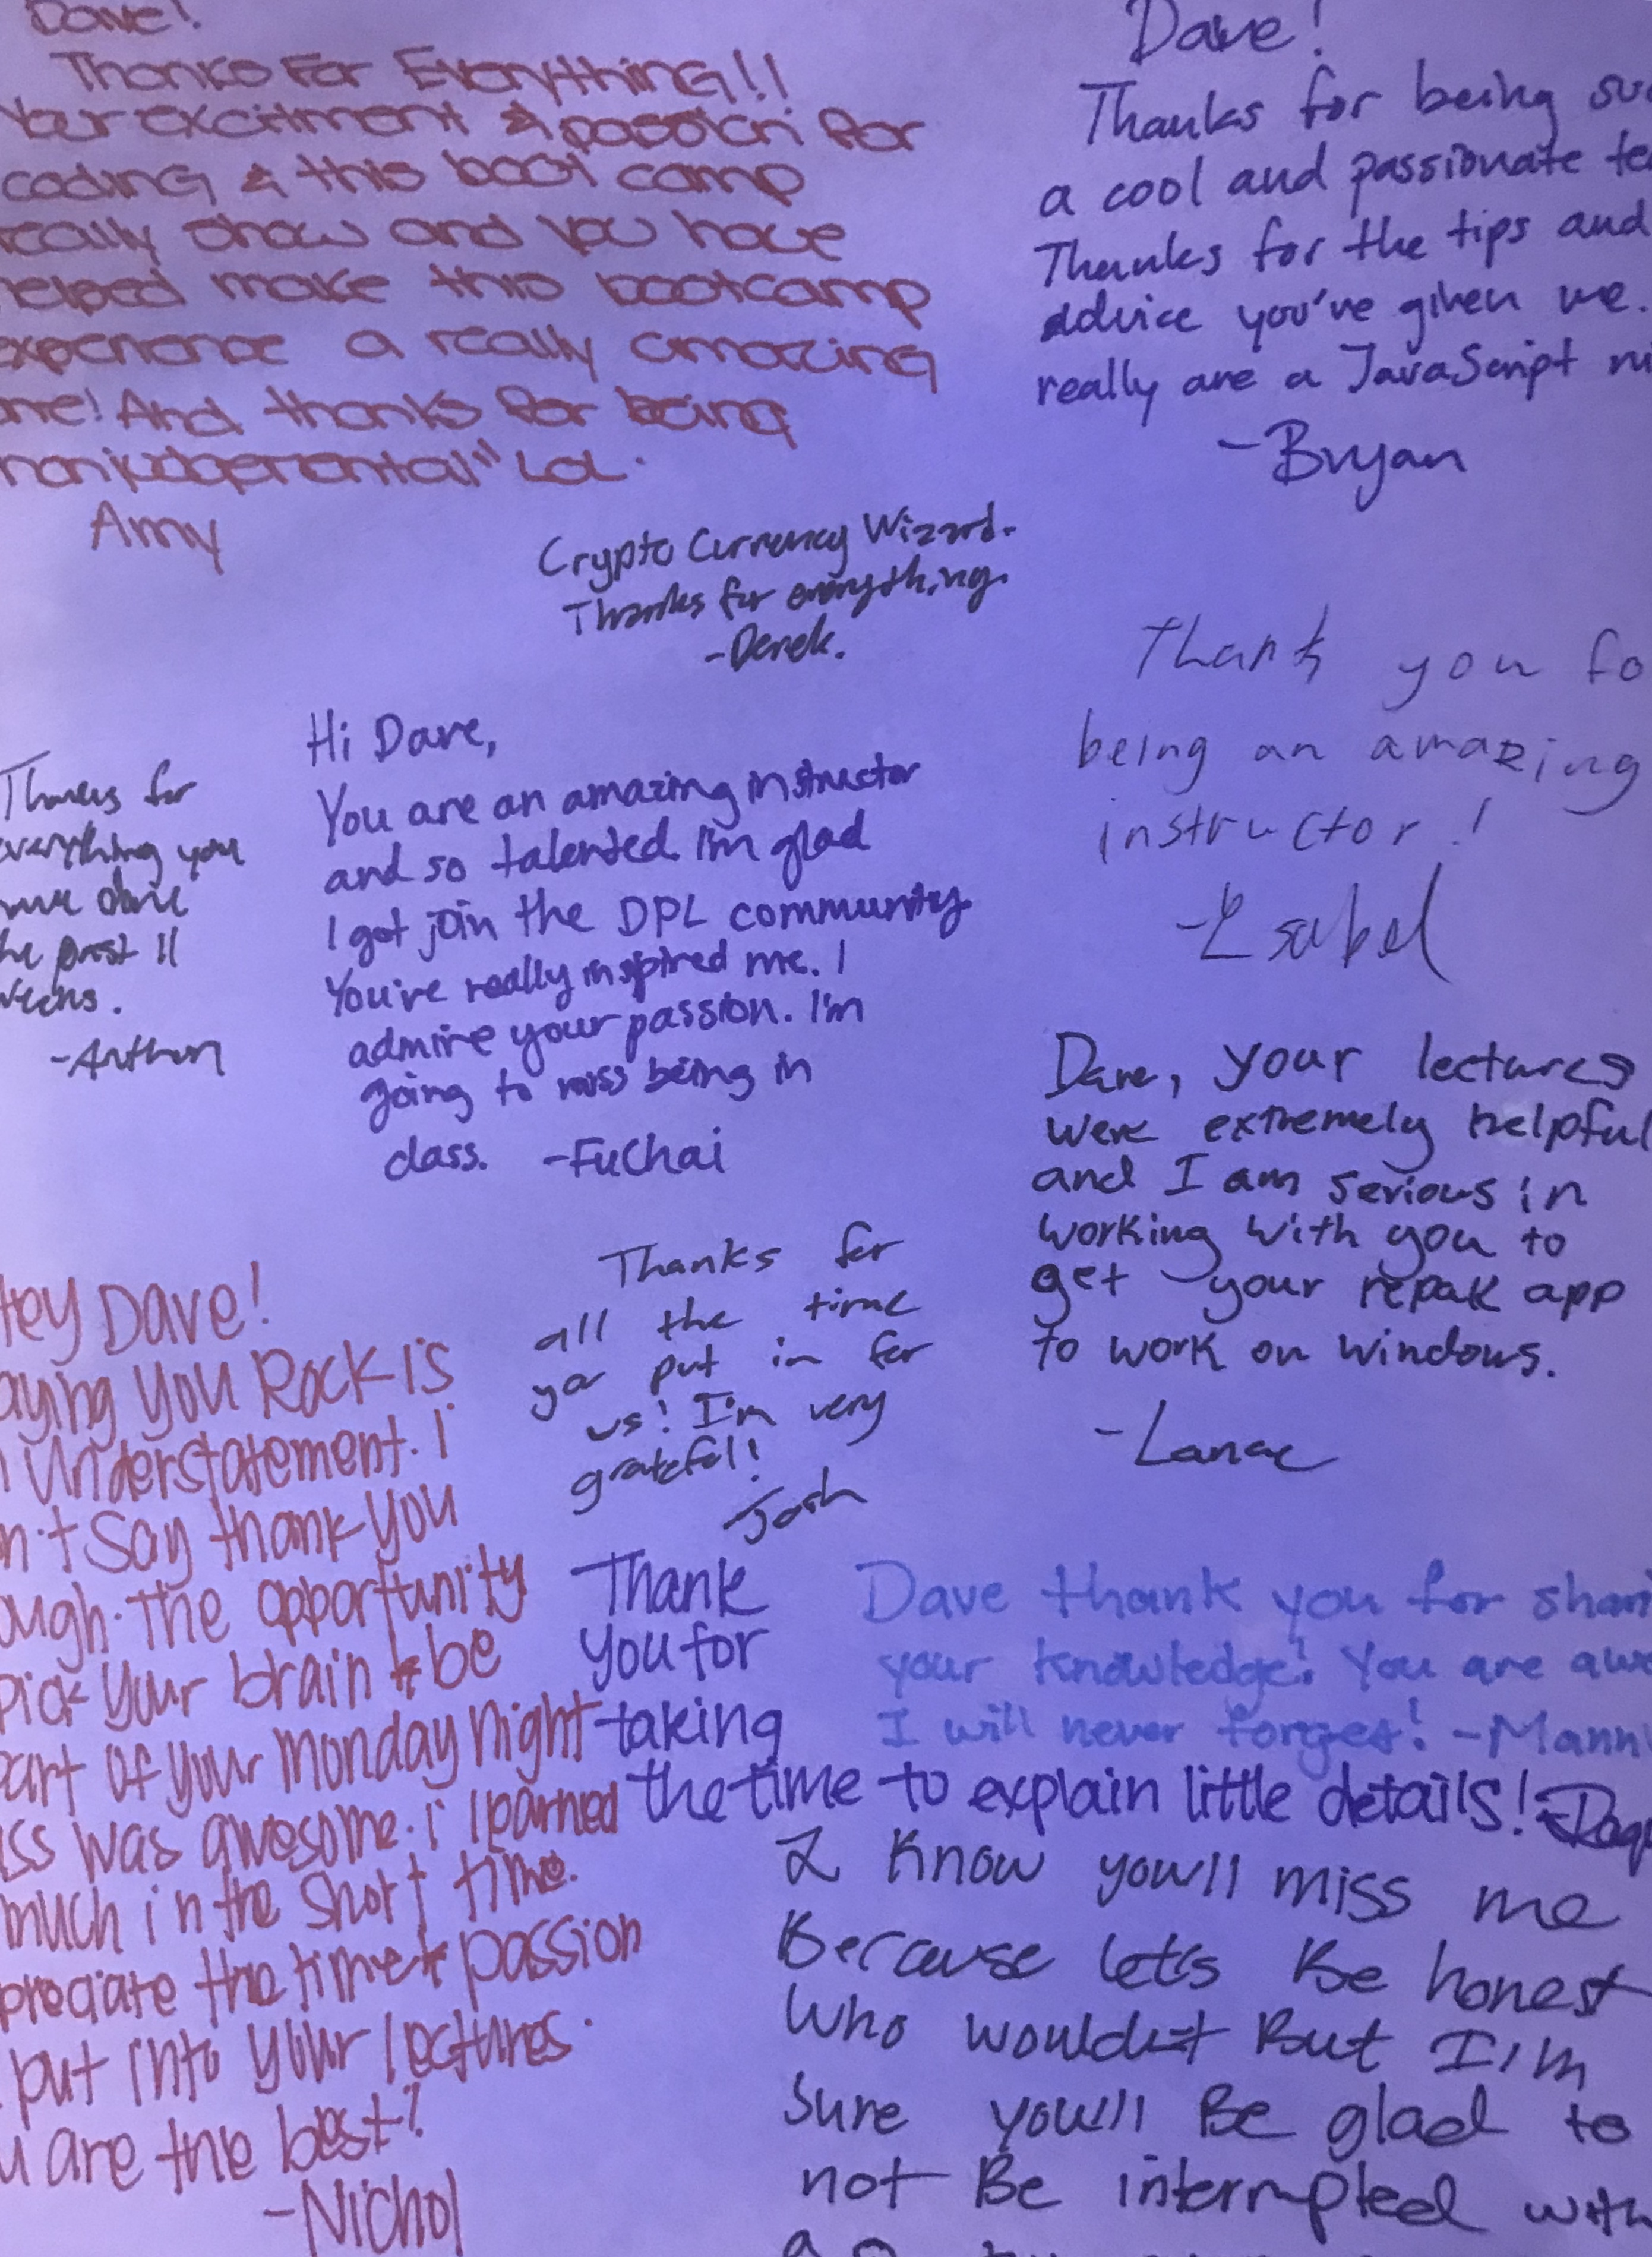 Dave!
Thanks For Everything!!
Your excitment & passion for
coding & this boot camp
really show and you have
helped make this bootcamp
experience a really amazing
one! And thanks for being
nonjudgemental" LOL.
Amy
Dave!
Thanks for being
a cool and passionate
Thanks for the tips and
advice you've given me.
really are a JavaScript
-Bryan
Crypto Currency Wizard.
Thanks for everything.
-Derek.
Thank you fo
being an amazing
instructor!
-Isabel
Thanks for
everything you
have done
the past 11
weeks.
-Anthon
Hi Dave,
You are an amazing instructor
and so talented. I'm glad
I got join the DPL community
You've really inspired me. I
admire your passion. I'm
going to miss being in
class. -FuChai
Dave, your lectures
were extremely helpful
and I am serious in
working with you to
get your repak app
to work on windows.
-Lanae
Hey Dave!
aying you Rock is
n Understatement. I
n't say thank you
ough. The opportunity
pick your brain & be
part of your Monday night
ss was awesome. i learned
much in the short time.
preciate the time & passion
put into your lectures.
u are the best!
-Nichol
Thanks for
all the time
ya put in for
us! I'm very
grateful!
Josh
Thank
you for
taking
the time to explain little details!
Dave thank you for shari
your knowledge! You are awe
I will never forget! -Mann
I know you'll miss me
Because let's Be honest
Who wouldn't But I'm
Sure you'll Be glad to
not Be interrupted with